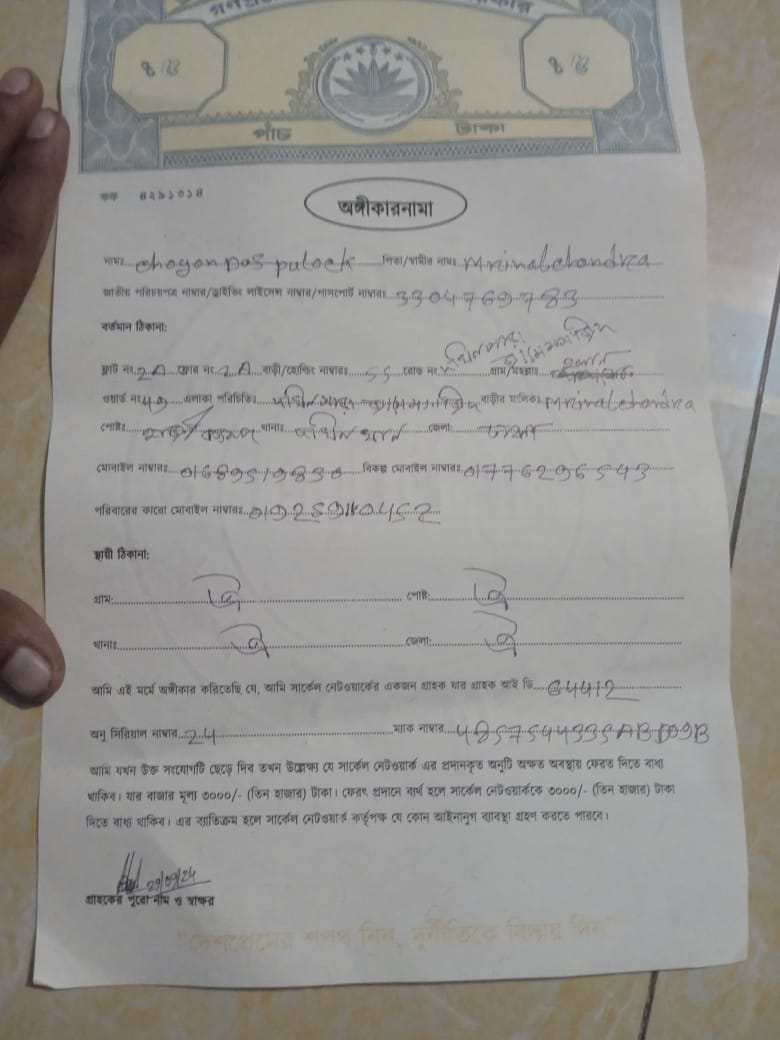 পাঁচ টাকা
কক ৪২৯১০১৪
অঙ্গীকারনামা
নামঃ choyon Das pulock পিতা/স্বামীর নামঃ Mrinal chandra
জাতীয় পরিচয়পত্র নাম্বার/ড্রাইভিং লাইসেন্স নাম্বার/পাসপোর্ট নাম্বারঃ 3304769783
বর্তমান ঠিকানা:
ফ্লাট নং 2A ফ্লোর নং 2A বাড়ী/হোল্ডিং নাম্বারঃ 55 রোড নং গ্রাম/মহল্লাঃ
ওয়ার্ড নং 49 এলাকা পরিচিতিঃ বাড়ীর মালিকঃ Mrinal chandra
পোষ্টঃ থানাঃ দক্ষিনখান জেলা: ঢাকা
মোবাইল নাম্বারঃ বিকল্প মোবাইল নাম্বারঃ 01776296543
পরিবারের কারো মোবাইল নাম্বারঃ
স্থায়ী ঠিকানা:
গ্রাম: ঐ পোষ্ট: ঐ
থানাঃ ঐ জেলা: ঐ
আমি এই মর্মে অঙ্গীকার করিতেছি যে, আমি সার্কেল নেটওয়ার্কের একজন গ্রাহক যার গ্রাহক আই ডি 64412
অনু সিরিয়াল নাম্বার 24 ম্যাক নাম্বার
আমি যখন উক্ত সংযোগটি ছেড়ে দিব তখন উল্লেক্ষ্য যে সার্কেল নেটওয়ার্ক এর প্রদানকৃত অনুটি অক্ষত অবস্থায় ফেরত দিতে বাধ্য
থাকিব। যার বাজার মূল্য ৩০০০/- (তিন হাজার) টাকা। ফেরৎ প্রদানে ব্যর্থ হলে সার্কেল নেটওয়ার্ককে ৩০০০/- (তিন হাজার) টাকা
দিতে বাধ্য থাকিব। এর ব্যতিক্রম হলে সার্কেল নেটওয়ার্ক কর্তৃপক্ষ যে কোন আইনানুগ ব্যাবস্থা গ্রহণ করতে পারবে।
29/09/24
গ্রাহকের পুরো নাম ও স্বাক্ষর
"দেশপ্রেমের শপথ নিন, দুর্নীতিকে বিদায় দিন"